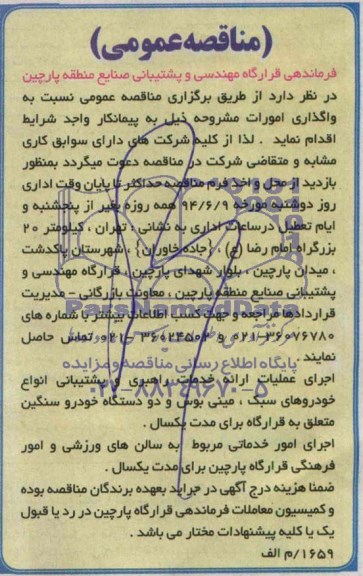 (مناقصه عمومی)
فرماندهی قرارگاه مهندسی و پشتیبانی صنایع منطقه پارچین
در نظر دارد از طریق برگزاری مناقصه عمومی نسبت به
واگذاری امورات مشروحه ذیل به پیمانکار واجد شرایط
اقدام نماید . لذا از کلیه شرکت های دارای سوابق کاری
مشابه و متقاضی شرکت در مناقصه دعوت میگردد بمنظور
بازدید از محل و اخذ فرم مناقصه حداکثر تا پایان وقت اداری
روز دوشنبه مورخه ۹۴/۶/۹ همه روزه بغیر از پنجشنبه و
ایام تعطیل درساعات اداری به نشانی : تهران ، کیلومتر ۲۰
بزرگراه امام رضا (ع) ، {جاده خاوران} ، شهرستان پاکدشت
، میدان پارچین ، بلوار شهدای پارچین ، قرارگاه مهندسی و
پشتیبانی صنایع منطقه پارچین ، معاونت بازرگانی - مدیریت
قراردادها مراجعه و جهت کسب اطلاعات بیشتر با شماره های
۰۲۱-۳۶۰۷۶۷۸۰ و ۳۶۰۲۴۵۰۲-۰۲۱ تماس حاصل
نمایند .
پایگاه اطلاع رسانی مناقصه و مزایده
اجرای عملیات ارائه خدمات راهبری و پشتیبانی انواع
۰۲۱-۸۸۳۴۹۶۷۰-۵
خودروهای سبک ، مینی بوس و دو دستگاه خودرو سنگین
متعلق به قرارگاه برای مدت یکسال .
اجرای امور خدماتی مربوط به سالن های ورزشی و امور
فرهنگی قرارگاه پارچین برای مدت یکسال .
ضمنا هزینه درج آگهی در جراید بعهده برندگان مناقصه بوده
و کمیسیون معاملات فرماندهی قرارگاه پارچین در رد یا قبول
یک یا کلیه پیشنهادات مختار می باشد .
۱۶۵۹/م الف